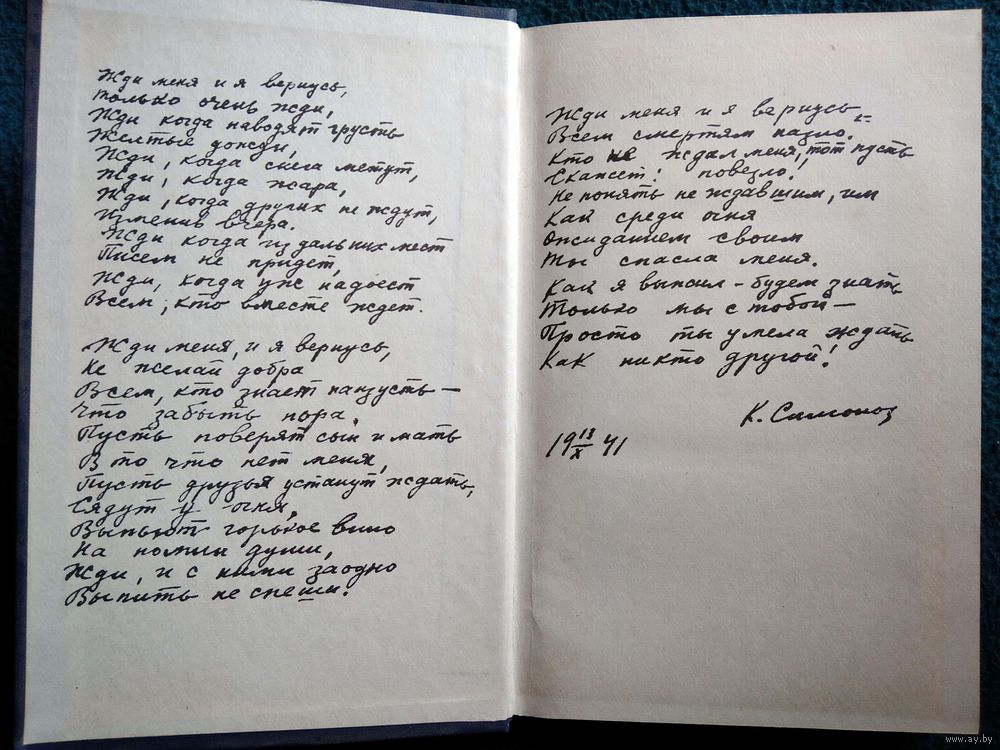 Жди меня и я вернусь,
только очень жди,
Жди когда наводят грусть
Желтые дожди,
Жди, когда снега метут,
Жди, когда жара,
Жди, когда других не ждут,
Изменив вчера.
Жди когда из дальних мест
Писем не придет,
Жди, когда уже надоест
Всем, кто вместе ждет.
Жди меня, и я вернусь,
Не желай добра
Всем, кто знает наизусть –
Что забыть пора.
Пусть поверят сын и мать
В то что нет меня,
Пусть друзья устанут ждать,
Сядут у огня,
Выпьют горькое вино
На помин души,
Жди, и с ними заодно
Выпить не спеши.
Жди меня и я вернусь –
Всем смертям назло.
Кто не ждал меня, тот пусть
Скажет: повезло!
Не понять не ждавшим, им
Как среди огня
Ожиданием своим
Ты спасла меня.
Как я выжил – будем знать
Только мы с тобой –
Просто ты умела ждать
Как никто другой!
К. Симонов
19 13/X 41
www.ay.by